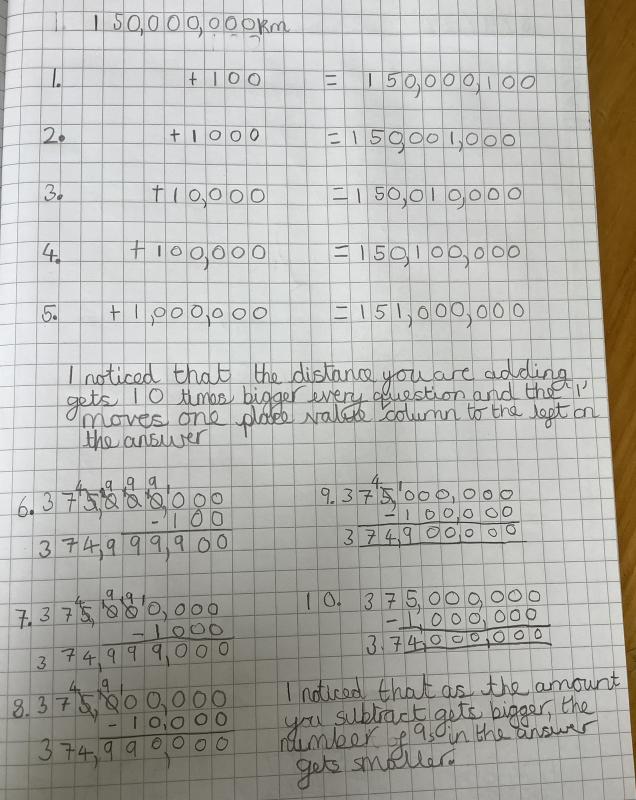 150,000,000km
1. +100 = 150,000,100
2. +1000 = 150,001,000
3. +10,000 = 150,010,000
4. +100,000 = 150,100,000
5. +1,000,000 = 151,000,000
I noticed that the distance you are adding
gets 10 times bigger every question and the '1'
moves one place value column to the left on
the answer
6. 375,000,000
-100
374,999,900
7. 375,000,000
-1000
374,999,000
8. 375,000,000
-10,000
374,990,000
9. 375,000,000
-100,000
374,900,000
10. 375,000,000
-1,000,000
3.74,000,000
I noticed that as the amount
you subtract gets bigger, the
number of 9s in the answer
gets smaller.